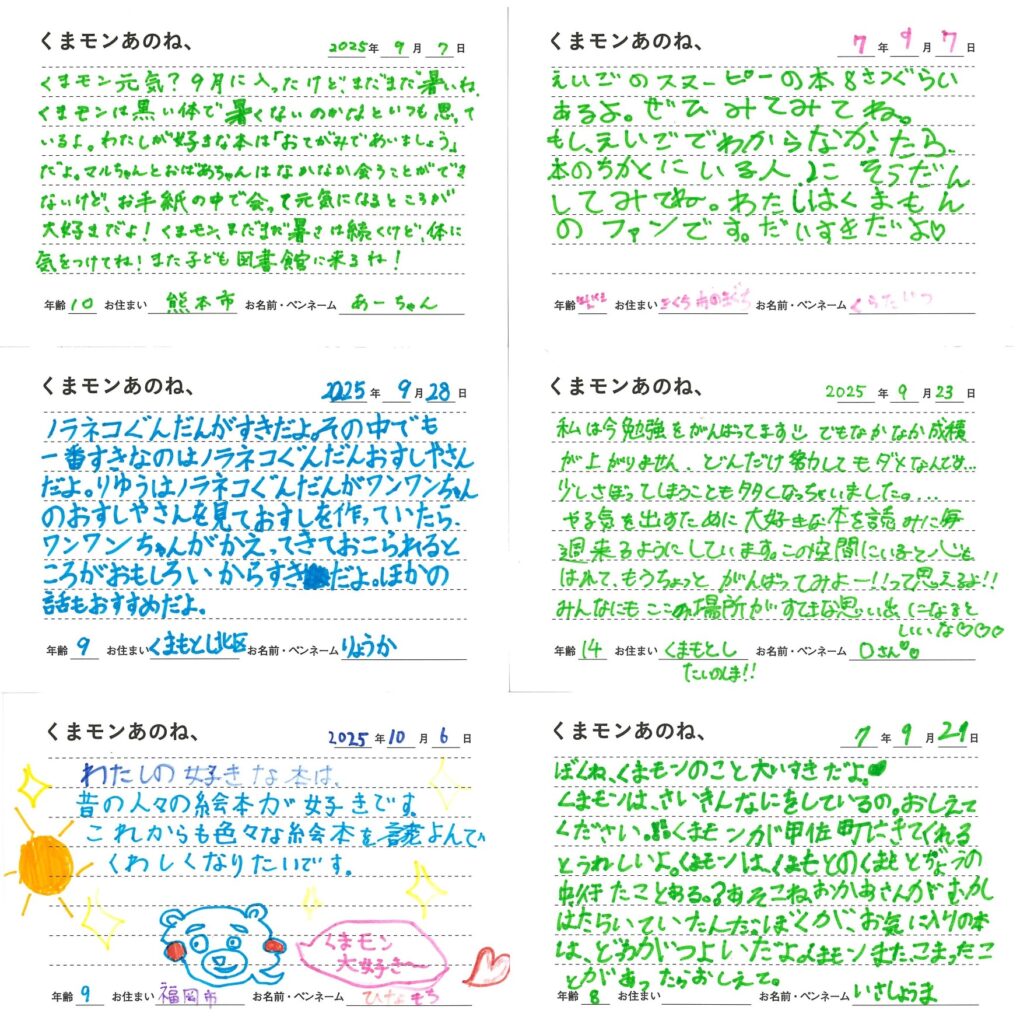 くまモンあのね、
2025年 9月 7日
くまモン元気？９月に入ったけど、まだまだ暑いね。
くまモンは黒い体で暑くないのかなといつも思って
いるよ。わたしが好きな本は「おてがみであいましょう」
だよ。マルちゃんとおばあちゃんはなかなか会うことができ
ないけど、お手紙の中で会って元気になるところが
大好きだよ！くまモン、まだまだ暑さは続くけど、体に
気をつけてね！また子ども図書館に来るね！
年齢 10 お住まい 熊本市 お名前・ペンネーム あーちゃん
くまモンあのね、
7年 9月 7日
えいごのスヌーピーの本８さつぐらい
あるよ。ぜひみてみてね。
もし、えいごでわからなかったら、
本のちかくにいる人に そうだん
してみてね。わたしはくまもん
のファンです。だいすきだよ♡
年齢 お住まい お名前・ペンネーム くらたいつ
くまモンあのね、
2025年 9月28日
ノラネコぐんだんがすきだよ。その中でも
一番すきなのはノラネコぐんだんおすしやさん
だよ。りゆうはノラネコぐんだんがワンワンちゃん
のおすしやさんを見ておすしを作っていたら、
ワンワンちゃんがかえってきておこられると
ころがおもしろいからすきだよ。ほかの
話もおすすめだよ。
年齢 9 お住まい くまもとし北区 お名前・ペンネーム りょうか
くまモンあのね、
2025年 9月23日
私は今勉強をがんばってます でもなかなか成積
が上がりません、どんだけ努力してもダメなんでめ…
少しさぼってしまうことも多くなっちゃいました。…
やる気を出すために大好きな本を読みに毎
週来るようにしています。この空間にいると心も
はれて、もうちょっとがんばってみよー!!って思えるよ!!
みんなにもここの場所がすてきな思い出になると
いいな♡♡♡
年齢 14 お住まい くまもとし お名前・ペンネーム Oさん♡♡
たいのしま!!
くまモンあのね、
2025年10月 6日
わたしの好きな本は、
昔の人々の絵本が好きです。
これからも色々な絵本を読よんで
くわしくなりたいです。
くまモン
大好き〜
年齢 9 お住まい 福岡市 お名前・ペンネーム ひなもち
くまモンあのね、
7年 9月 21日
ぼくね、くまモンのこと大いすきだよ。
くまモンは、さいきんなにをしているの。おしえて
ください。くまモンが甲佐町にきてくれる
とうれしいよ。くまモンは、くまもとのくまもとじょうの
中行たことある。？あそこね、おかあさんがむかし
はたらいていたんだ。ぼくが、お気に入りの本
は、どわがいつよいだよ。くまモンまたこまったこ
とがあったらおしえて。
年齢 8 お住まい お名前・ペンネーム いさしょうま